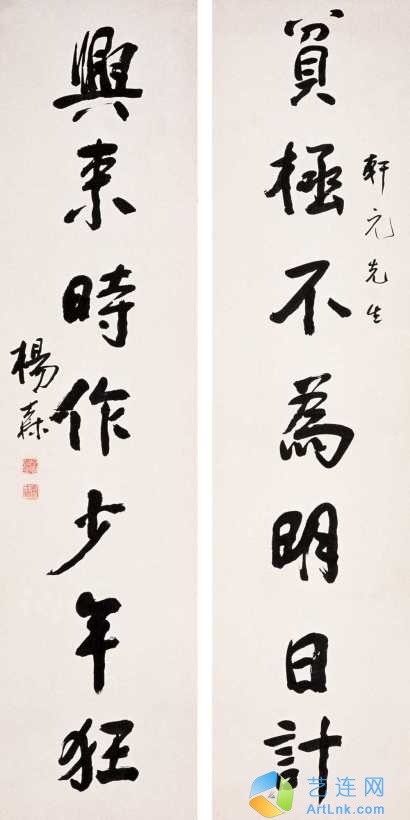 軒元先生
貧極不為明日計
興來時作少年狂
楊森
艺连网
ArtLnk.com